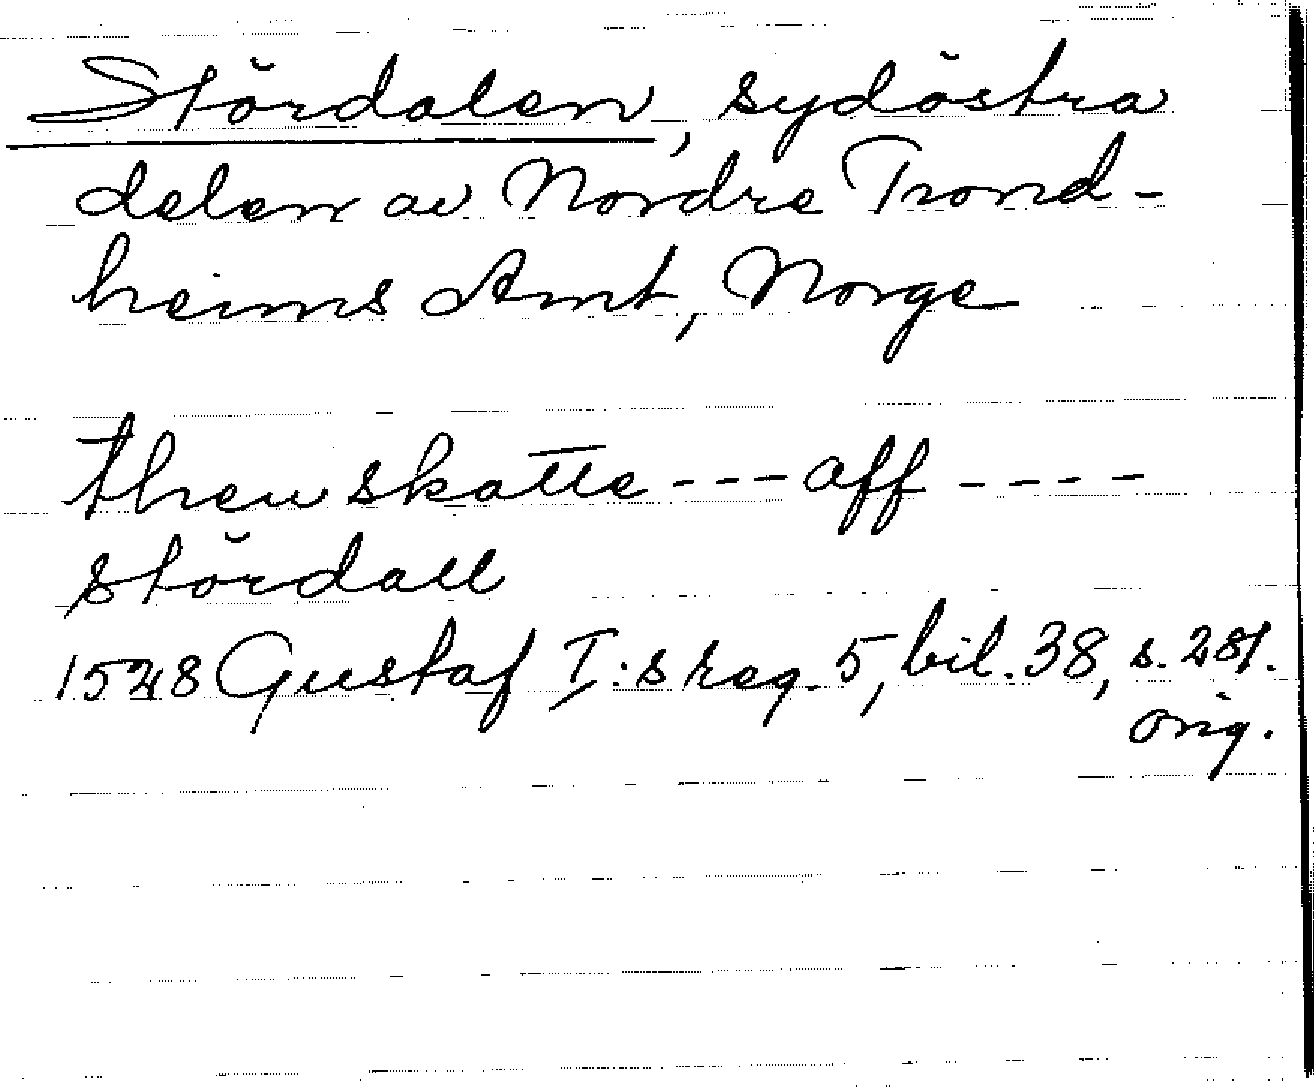 Stördalen, sydöstra
delen av Nordre Trond-
heims Amt, Norge
then skatte --- aff ----
stördall
1528 Gustaf I:s reg. 5, bil. 38, s. 281.
orig.